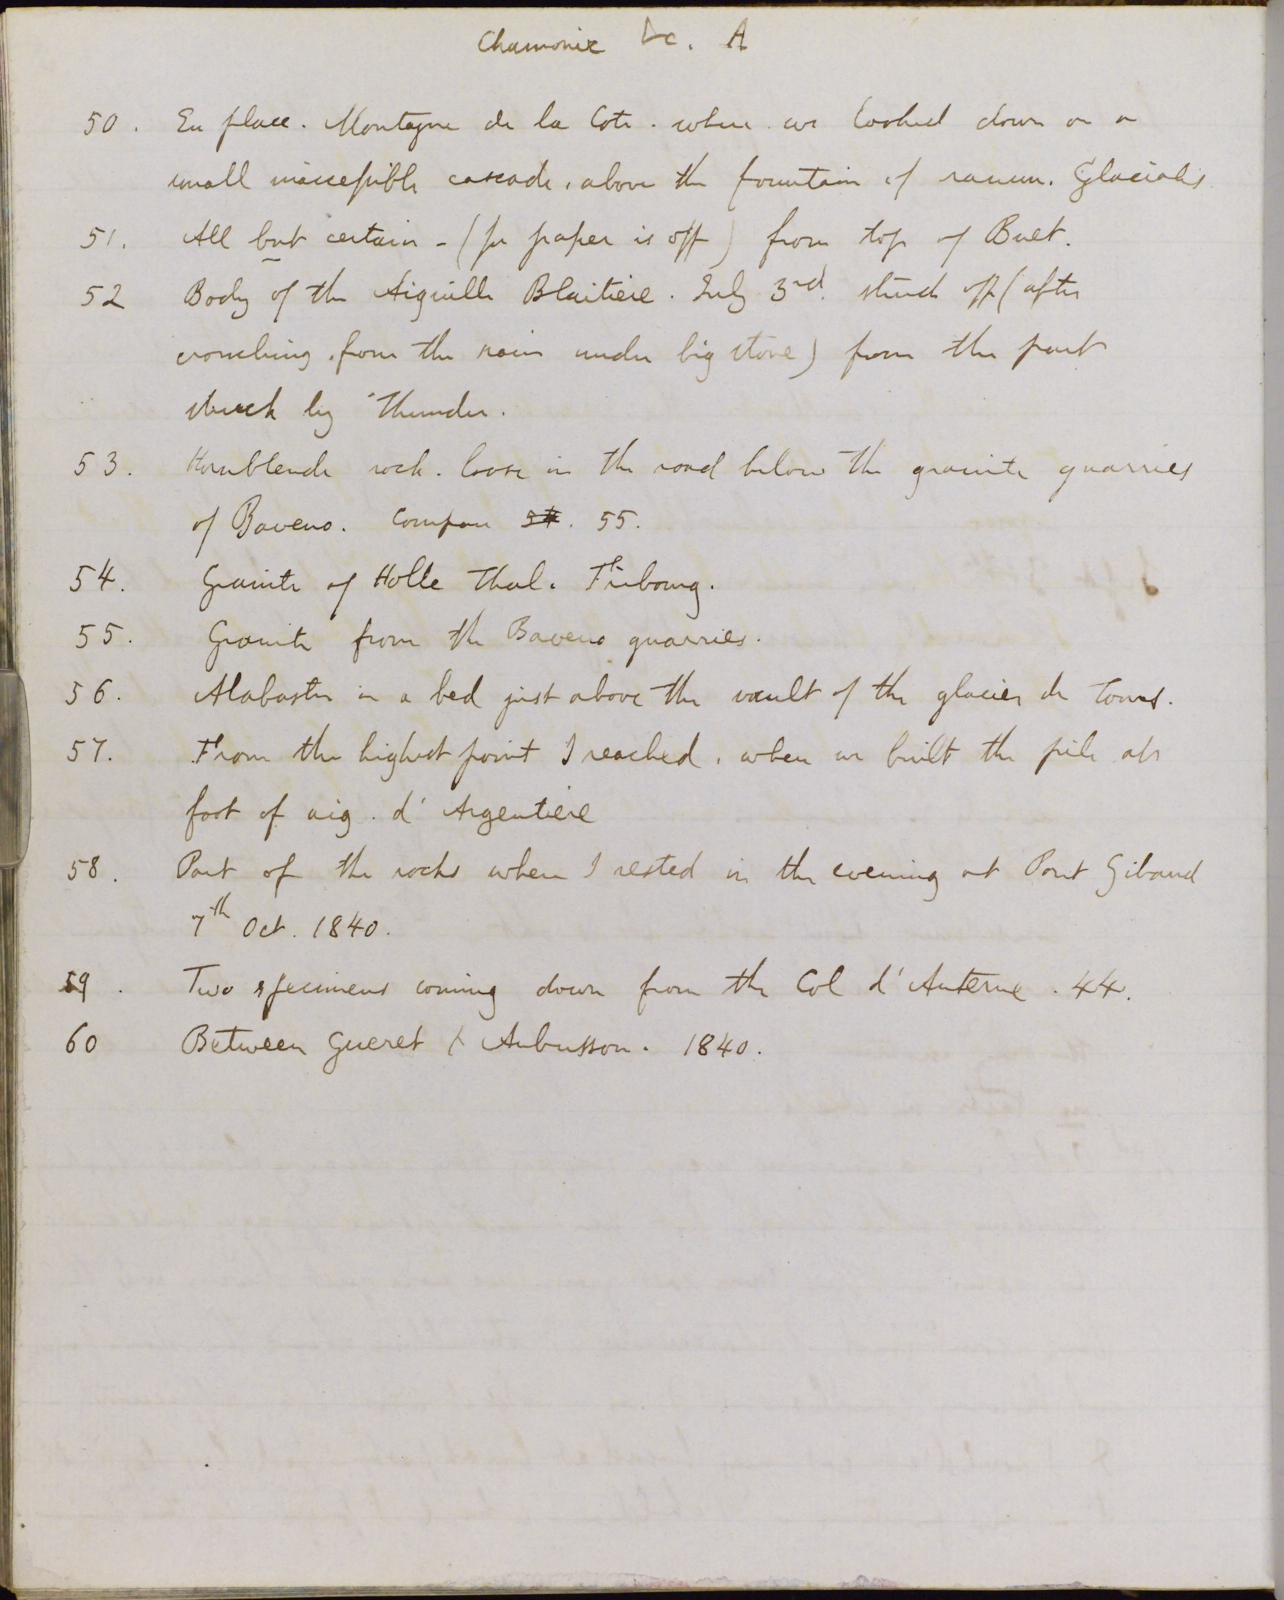 Chamonix &c. A
50. En place. Montagne de la Cote. where we looked down on a
small inaccessible cascade, above the fountain of ranun. Glacialis
51. All but certain - (for paper is off) from top of Buet.
52 Body of the Aiguille Blaitiere. July 3rd. struck off (after
crouching from the rain under big stone) from the part
struck by thunder.
53. Hornblende rock. loose in the road below the granite quarries
of Baveno. Compare 54. 55.
54. Granite of Holle Thal. Fribourg.
55. Granite from the Baveno quarries.
56. Alabaster in a bed just above the vault of the glacier de Tours.
57. From the highest point I reached, when we built the pile at
foot of aig. d' Argentiere
58. Part of the rocks where I rested in the evening at Pont Gibaud
7th Oct. 1840.
59. Two specimens coming down from the Col d' Anterne. 44.
60 Between Gueret & Aubusson. 1840.